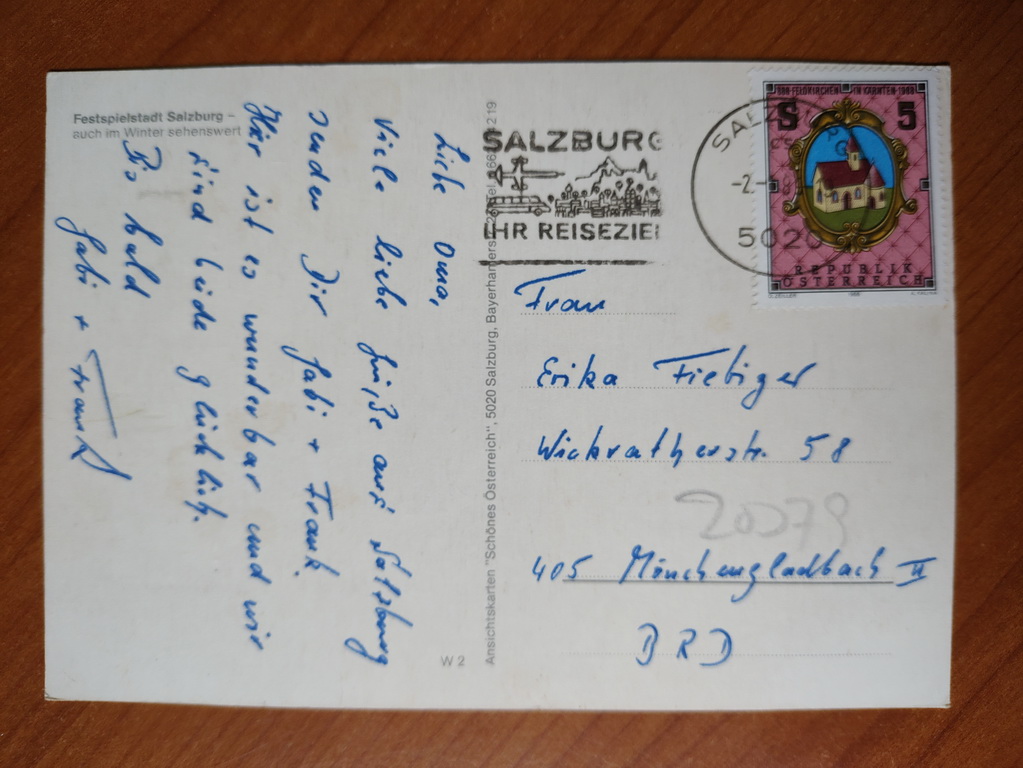 Festspielstadt Salzburg –
auch im Winter sehenswert
Liebe Oma,
Viele liebe Grüße aus Salzburg
senden Dir Gabi + Frank.
Hier ist es wunderbar und wir
sind beide glücklich.
Bis bald
Gabi + Frank
W 2
Ansichtskarten "Schönes Österreich", 5020 Salzburg, Bayerhamerstr.
SALZBURG
IHR REISEZIEL
SALZBURG
5020
988 FELDKIRCHEN IN KÄRNTEN 1988
S 5
REPUBLIK
ÖSTERREICH
Frau
Erika Fiebiger
Wickratherstr. 58
20379
405 Mönchengladbach II
BRD